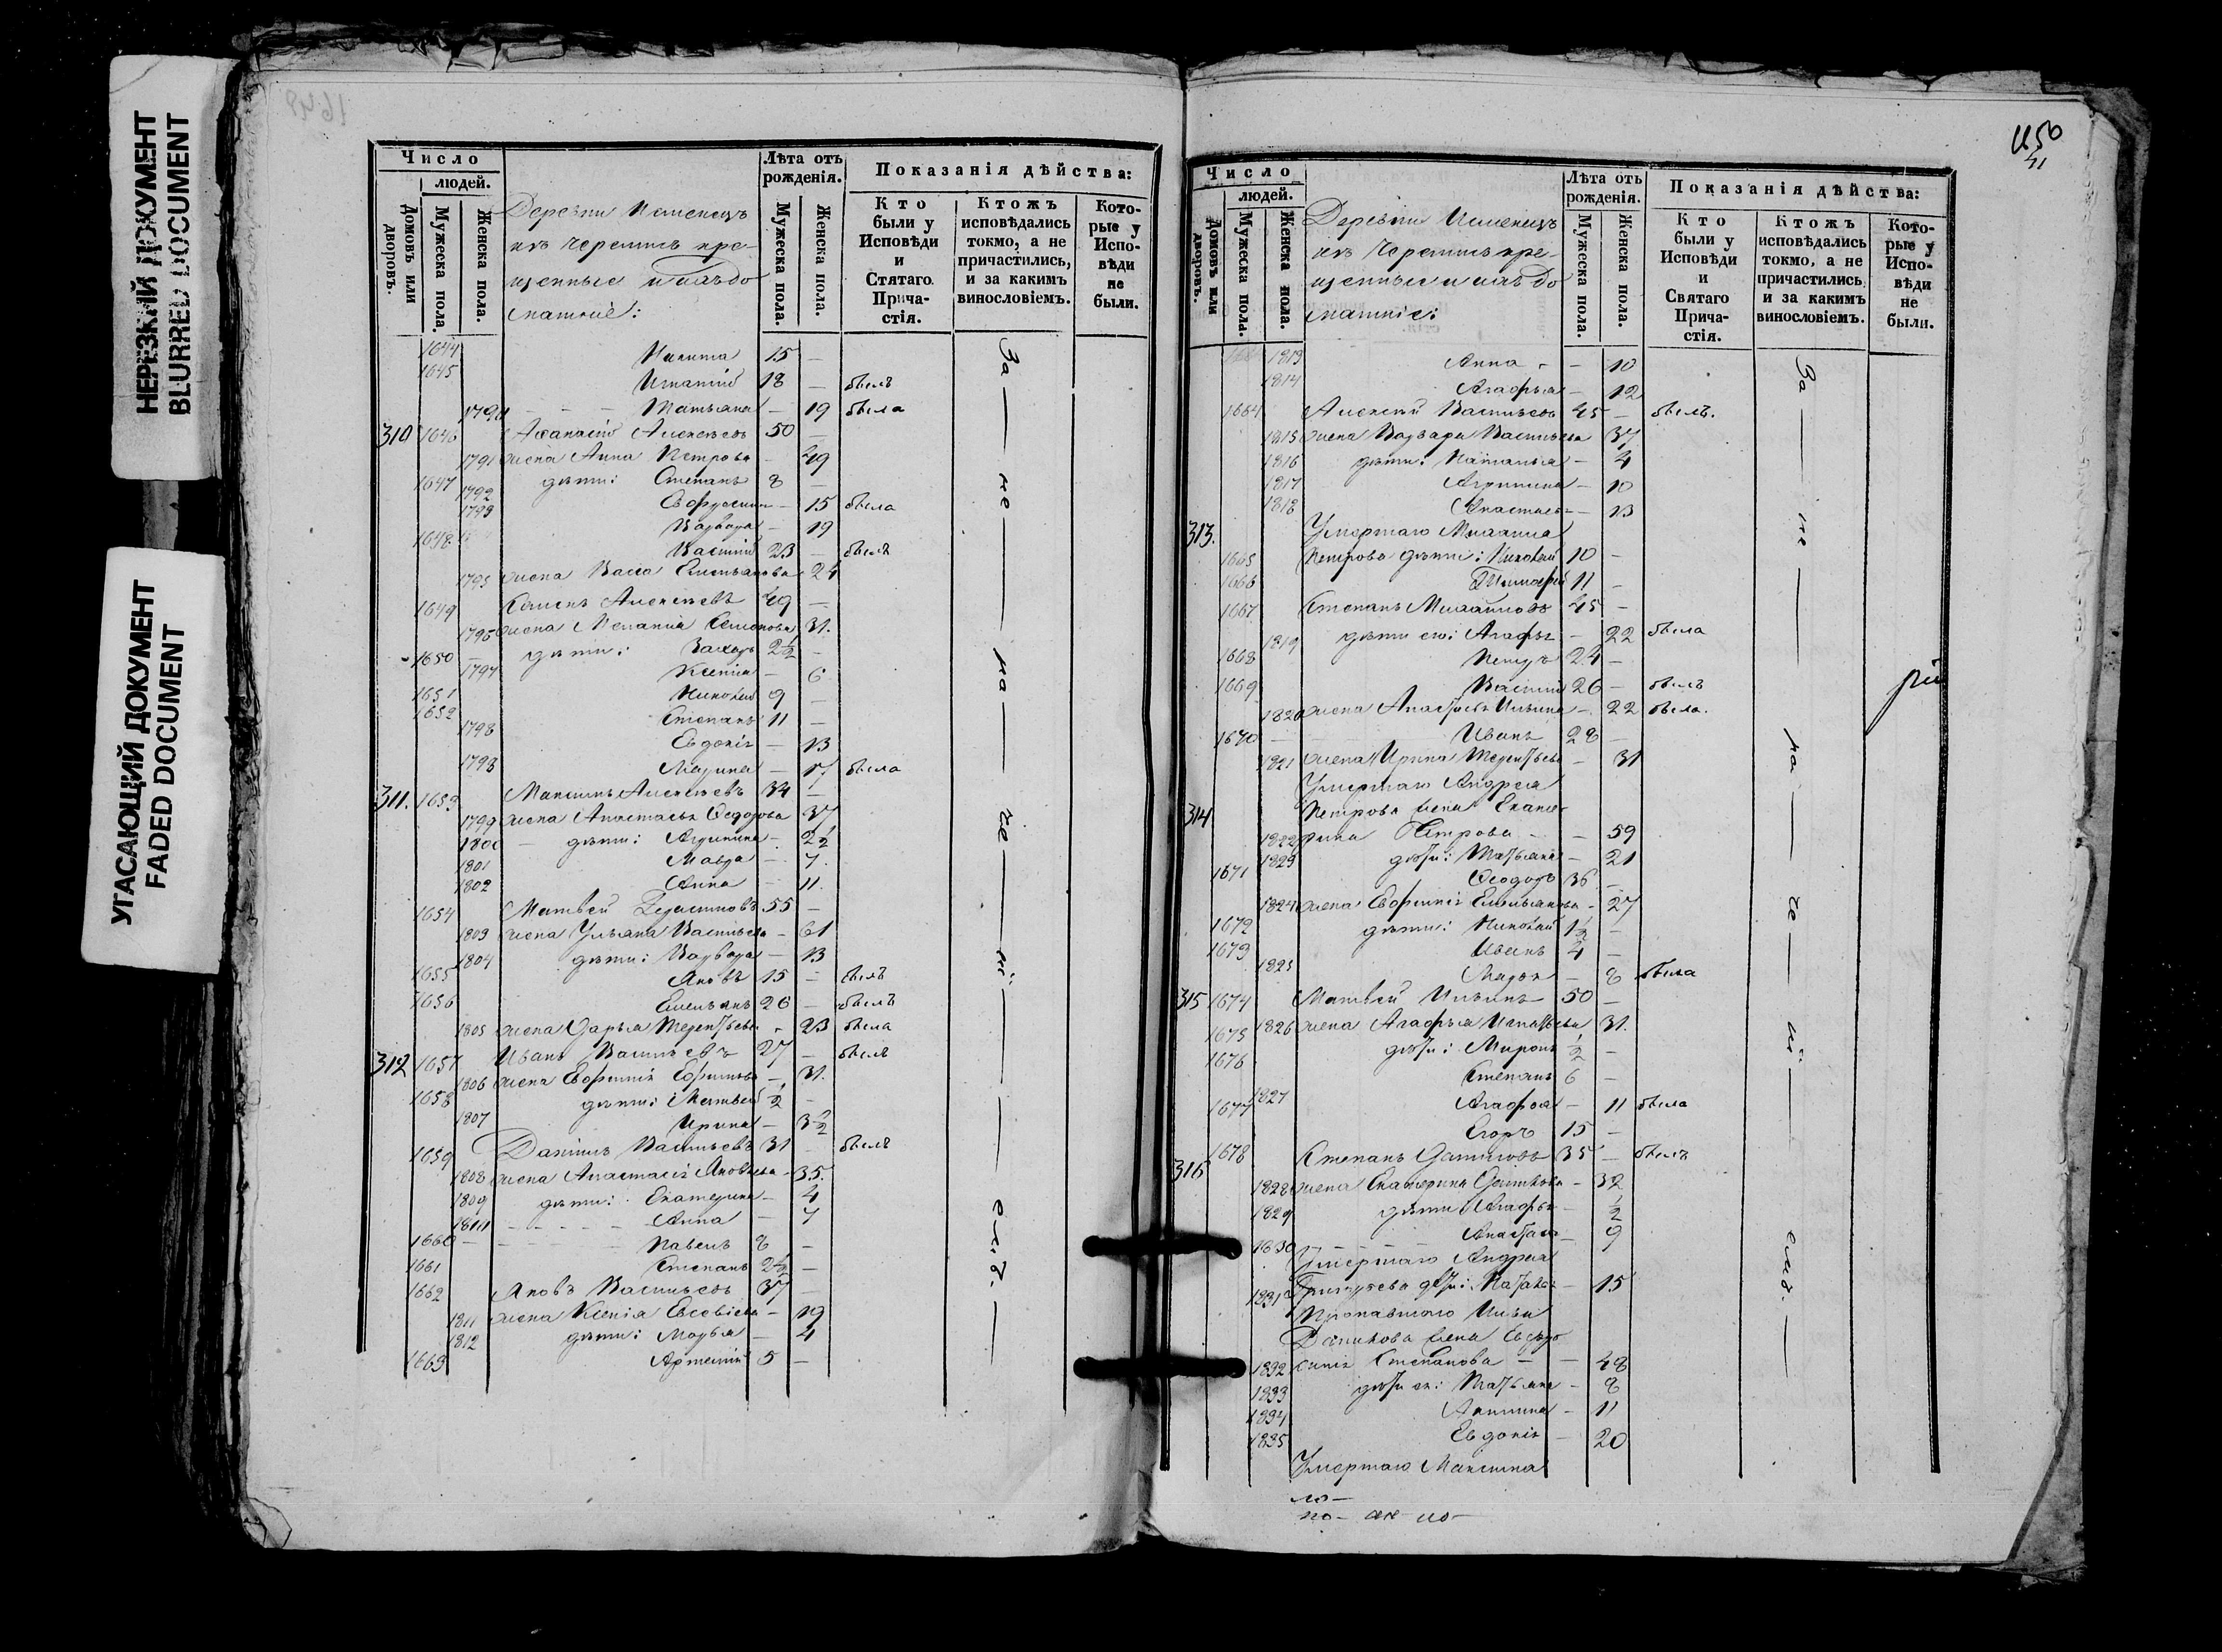 НЕРЕЗКИЙ ДОКУМЕНТ
BLURRED DOCUMENT
УГАСАЮЩИЙ ДОКУМЕНТ
FADED DOCUMENT
Число
людей.
Домовъ или дворовъ.
Мужеска пола.
Женска пола.
Деревни
изъ черемисъ кре-
щенные и ихъ до
машніе:
Лѣта отъ рожденія.
Мужеска пола.
Женска пола.
Показанія дѣйства:
Кто были у Исповѣди и Стятаго Прича-стія.
Ктожъ исповѣдались токмо, а не причастились, и за какимъ винословіемъ.
Кото-рые у Испо-вѣди не были.
1644 Никита 15 —
1645 Игнатій 18 — былъ
Татьяна — 19 была
310 1646 Аѳанасій Алексѣевъ 50 —
1791 жена Анна Петрова — 49
1647 дѣти: Степанъ 8 —
1792 — 15 была
1793 Варвара — 19
1648 Василій 23 — былъ
1795 жена Васса Емельянова 24
1649 Алексѣевъ 49 —
1796 жена Меланія Семенова 31.
1650 дѣти: Захаръ 2½ —
1797 Ксенія — 6
1651 Николай 9 —
1652 Степанъ 11 —
1798 Евдокія — 13
1798 Марина — 17 была
311. 1653 Максимъ Алексѣевъ 34 —
1799 жена Анастасья Ѳедорова 37
1800 дѣти: Агрипина — 2½
1801 Мавра — 7.
1802 Анна — 11.
1654 Матвей Герасимовъ 55 —
1803 жена Ульяна Васильева — 61
1804 дѣти: Варвара — 13
1655 Яковъ 15 — былъ
1656 Емельянъ 26 — былъ
1805 жена Дарья Терентьева — 23 была
312 1657 Иванъ Васильевъ 27 — былъ
1806 жена Евфимія Ефимова — 31.
1658 дѣти: Матвей ½ —
1807 Ирина — 3½
1659 Даніилъ Васильевъ 31 — былъ
1808 жена Анастасія Яковлева — 35.
1809 дѣти: Екатерина — 4
1810 Анна — 7
1660 Павелъ 8 —
1661 Степанъ 2½ —
1662 Яковъ Васильевъ 37 —
1811 жена Ксенія Евсевіева — 19
1812 дѣти: Марья — 4
1663 Артемій 5 —
Число
людей.
Домовъ или дворовъ.
Мужеска пола.
Женска пола.
Деревни
изъ черемисъ кре-
щенные и ихъ до
машніе:
Лѣта отъ рожденія.
Мужеска пола.
Женска пола.
Показанія дѣйства:
Кто были у Исповѣди и Святаго Прича-стія.
Ктожъ исповѣдались токмо, а не причастились и за какимъ винословіемъ.
Кото-рые у Испо-вѣди не были.
1813 Анна — 10
1814 Агафья — 12
1664 Алексѣй Васильевъ 45 — былъ.
1815 жена Варвара Васильева 37
1816 дѣти: Наталья — 4
1817 Агрипина — 10
1818 Анастасья — 13
313. Умершаго Михаила
1665 Петрова дѣти: Николай 10 —
1666 Тимофей 11 —
1667 Степанъ Михайловъ 45 —
1819 дѣти его: Агафья — 22 была
1668 Петръ 24 —
1669 Василій 26 — былъ
1820 жена Анастасья Ильина — 22 была.
1670 Иванъ 28 —
1821 жена Ирина Терентьева — 31
Умершаго Андрея
314 Петрова жена Екате-
1822 рина Петрова — — 59
1823 дѣти: Татьяна — 21
1671 Ѳеодоръ 36 —
1824 жена Евфимія Емельянова — 27
1672 дѣти: Николай 1½ —
1673 Иванъ 4 —
1825 Марья — 8 была
315 1674 Матвей Ильинъ 50 —
1675 1826 жена Агафья Игнатьева 31.
1676 дѣти: Миронъ ½ —
Степанъ 6 —
1677 1827 Агафья — 11 была
Егоръ 15 —
1678 Степанъ Даниловъ 35 — былъ
316
1828 жена Екатерина — 32
1829 дѣти: Агафья — ½
1830 Анастасья — 9
Умершаго Андрея
1831 Григорьева дѣти: Наталья — 15
Пропавшаго Ильи
Данилова жена Евфро
1832 синія Степанова — — 48
1833 дѣти ея: Татьяна — 8
1834 Акилина — 11
1835 Евдокія — 20
Умершаго Максима